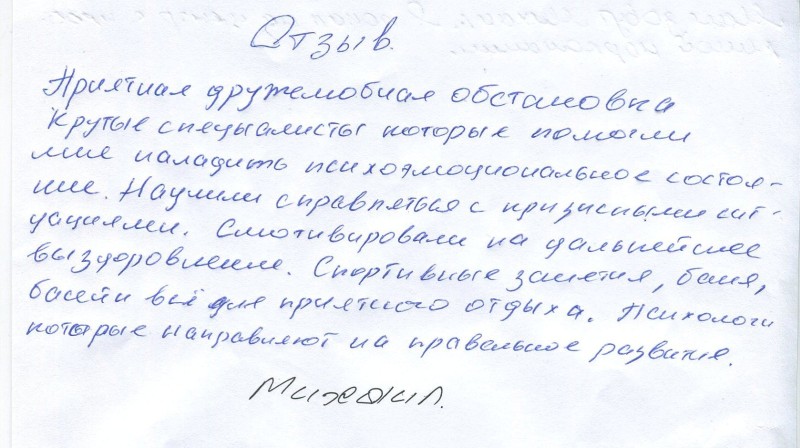 Отзыв.
Приятная дружелюбная обстановка
Крутые специалисты которые помогли
мне наладить психоэмоциональное состоя-
ние. Научили справляться с кризисными сит-
уациями. Смотивировали на дальнейшее
выздоровление. Спортивные занятия, баня,
басейн всё для приятного отдыха. Психологи
которые направляют на правельное развития.
Михаил.